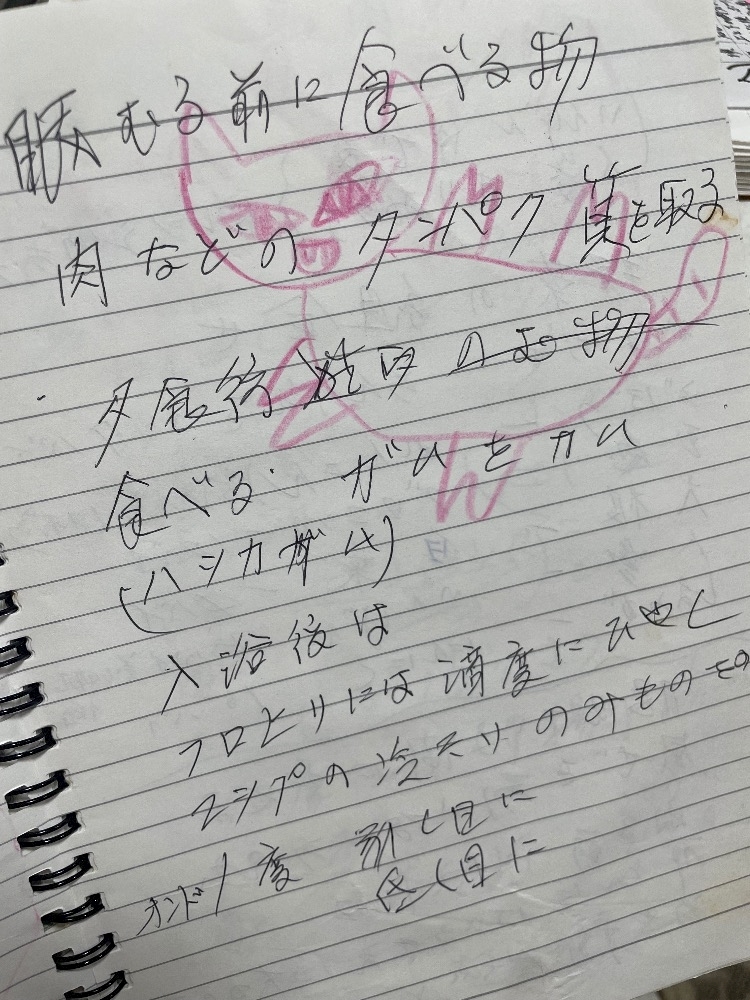 眠むる前に食べる物
肉などのタンパク質を取る
夕食後 のむ物
食べる ガムをカム
(ハッカガム)
入浴後は
フロヒリには適度にひやし
コップの冷えリのみもの
オンド1度 前し目に
低し目に